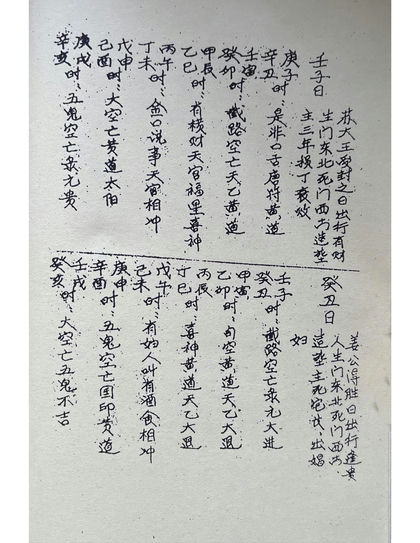 壬子日
林大王密封之日出行有财
生门东北死门西南造茔
主三年损丁衰败
庚子
辛丑时：是非口舌唐符黄道
壬寅
癸卯时：截路空亡天乙黄道
甲辰
乙巳时：有横财天官福星喜神
丙午
丁未时：金口说事天官相冲
戊申
己酉时：大空亡黄道太阳
庚戌
辛亥时：五鬼空亡彔元贵
癸丑日
姜公得胜日出行逢贵
人生门东北死门西南
造茔主死宅长，出娼
妇
壬子
癸丑时：截路空亡彔元大进
甲寅
乙卯时：旬空黄道天乙大退
丙辰
丁巳时：喜神黄道天乙大退
戊午
己未时：有妇人叫有酒食相冲
庚申
辛酉时：五鬼空亡国印黄道
壬戌
癸亥时：大空亡五鬼不吉